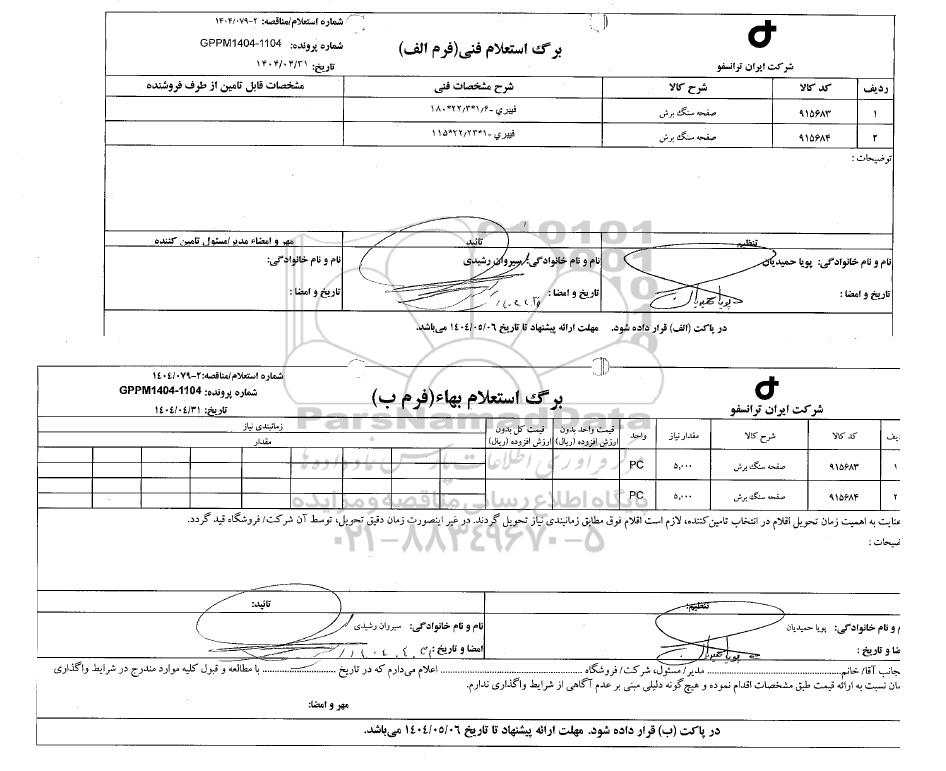 شماره استعلام/مناقصه: ۱۴۰۴/۰۷۹-۲
برگ استعلام فنی(فرم الف)
شماره پرونده: GPPM1404-1104
شرکت ایران ترانسفو
تاریخ: ۱۴۰۴/۰۴/۳۱
ردیف کد کالا شرح کالا شرح مشخصات فنی مشخصات قابل تامین از طرف فروشنده
۱ ۹۱۵۶۸۳ صفحه سنگ برش فیبری -۱/۶*۲۲/۳*۱۸۰
۲ ۹۱۵۶۸۴ صفحه سنگ برش فیبری -۱*۲۲/۲۳*۱۱۵
توضیحات :
تنظیم تائید مهر و امضاء مدیر/مسئول تامین کننده
نام و نام خانوادگی: پویا حمیدیان نام و نام خانوادگی: سیروان رشیدی نام و نام خانوادگی:
تاریخ و امضا : تاریخ و امضا : تاریخ و امضا :
در پاکت (الف) قرار داده شود. مهلت ارائه پیشنهاد تا تاریخ ۱۴۰۴/۰۵/۰۶ می‌باشد.
شماره استعلام/مناقصه: ۱۴۰۴/۰۷۹-۲
برگ استعلام بهاء(فرم ب)
شماره پرونده: GPPM1404-1104
شرکت ایران ترانسفو
تاریخ: ۱۴۰۴/۰۴/۳۱
یف کد کالا شرح کالا مقدار نیاز واحد قیمت واحد بدون ارزش افزوده (ریال) قیمت کل بدون ارزش افزوده (ریال) زمانبندی نیاز
مقدار
۱ ۹۱۵۶۸۳ صفحه سنگ برش ۵,۰۰۰ PC
۲ ۹۱۵۶۸۴ صفحه سنگ برش ۵,۰۰۰ PC
عنایت به اهمیت زمان تحویل اقلام در انتخاب تامین‌کننده، لازم است اقلام فوق مطابق زمانبندی نیاز تحویل گردند. در غیر اینصورت زمان دقیق تحویل، توسط آن شرکت/ فروشگاه قید گردد.
ضیحات :
تنظیم: تائید:
م و نام خانوادگی: پویا حمیدیان نام و نام خانوادگی: سیروان رشیدی
ضا و تاریخ : امضا و تاریخ :
جانب آقا/ خانم............ مدیر/ مسئول، شرکت/ فروشگاه ............ اعلام می‌دارم که در تاریخ ............ با مطالعه و قبول کلیه موارد مندرج در شرایط واگذاری
مان نسبت به ارائه قیمت طبق مشخصات اقدام نموده و هیچ گونه دلیلی مبنی بر عدم آگاهی از شرایط واگذاری ندارم.
مهر و امضا:
در پاکت (ب) قرار داده شود. مهلت ارائه پیشنهاد تا تاریخ ۱۴۰۴/۰۵/۰۶ می‌باشد.
ParsNamadData
مرکز فرآوری اطلاعات پارس نماد داده ها
پایگاه اطلاع رسانی مناقصه و مزایده
۰۲۱-۸۸۳۴۹۶۷۰-۵